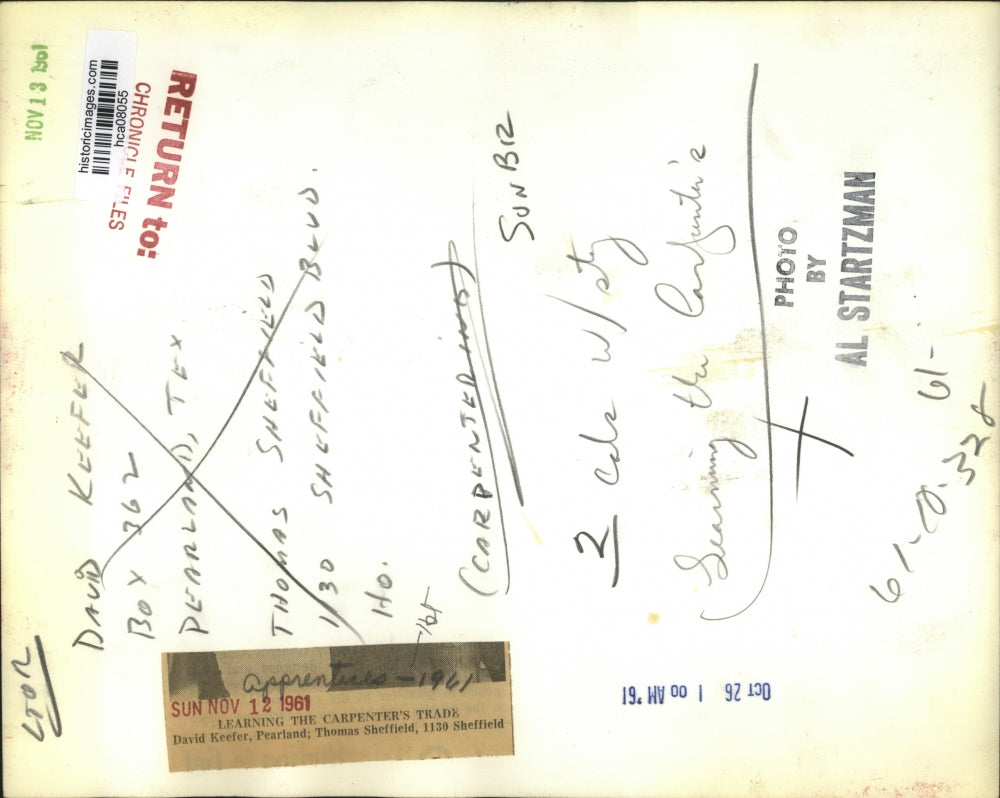 NOV 13 1961
historicimages.com
hca08055
RETURN to:
CHRONICLE FILES
DAVID KEEFER
BOX 362
PEARLAND, TEX
THOMAS SHEFFIELD
1130 SHEFFIELD BLVD.
HO.
(CARPENTERING)
SUN BIZ
2 cols w/ sty
Learning the Carpenter's
PHOTO
BY
AL STARTZMAN
OCT 26 1 00 AM '61
apprentices - 1961
SUN NOV 12 1961
LEARNING THE CARPENTER'S TRADE
David Keefer, Pearland; Thomas Sheffield, 1130 Sheffield